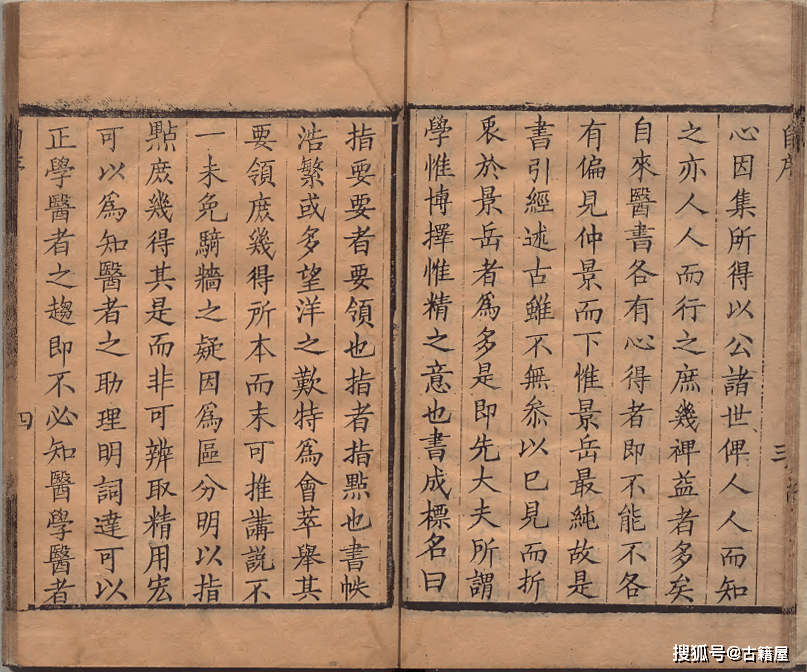 自序
三
心因集所得以公諸世俾人人而知
之亦人人而行之庶幾裨益者多矣
自來醫書各有心得者即不能不各
有偏見仲景而下惟景岳最純故是
書引經述古雖不無叅以已見而折
衷於景岳者為多是即先大夫所謂
學惟博擇惟精之意也書成標名曰
指要要者要領也指者指點也書帙
浩繁或多望洋之歎特為會萃舉其
要領庶幾得所本而末可推講說不
一未免騎牆之疑因為區分明以指
點庶幾得其是而非可辨取精用宏
可以為知醫者之助理明詞達可以
正學醫者之趨即不必知醫學醫者
四
搜狐号@古籍屋